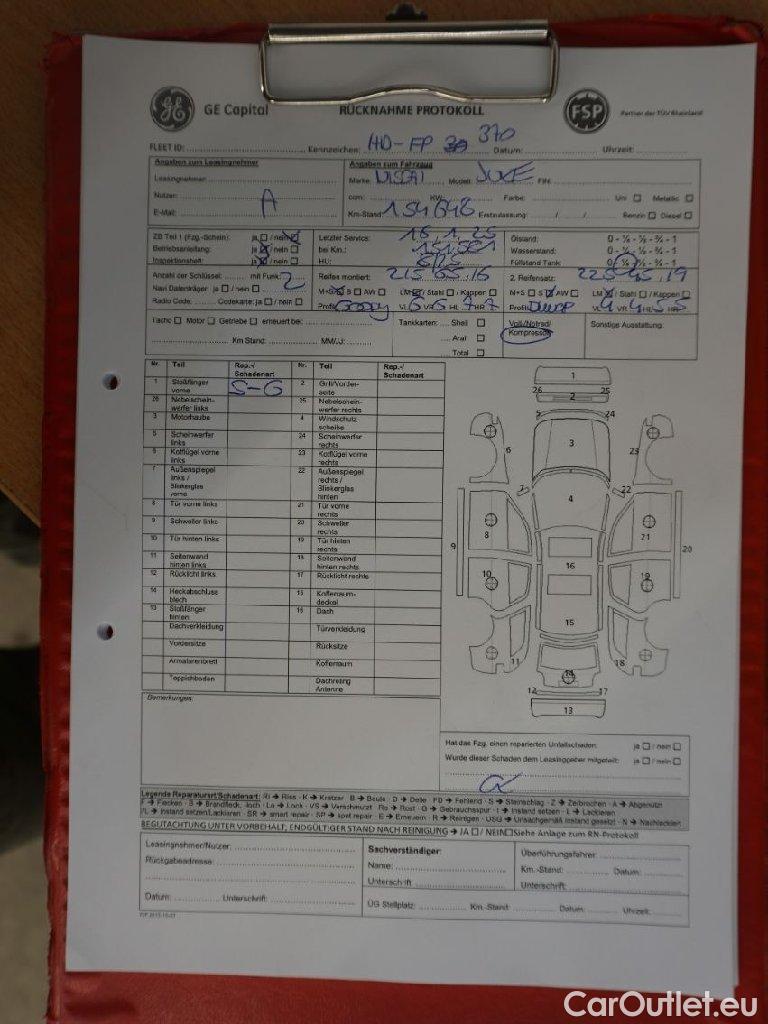 GE Capital RÜCKNAHME PROTOKOLL FSP Partner der TÜV Rheinland
FLEET ID: Kennzeichen: HD-FP 370 Datum: Uhrzeit:
Angaben zum Leasingnehmer Angaben zum Fahrzeug
Leasingnehmer: Marke: Modell: JUKE FIN:
Nutzer: A ccm: KW: Farbe: Uni Metallic
E-Mail: Km-Stand: 154648 Erstzulassung: / / Benzin Diesel
ZB Teil 1 (Fzg.-Schein): ja / nein Letzter Service: 16,1,25 Ölstand: 0 - ¼ - ½ - ¾ - 1
Betriebsanleitung: ja / nein bei Km.: Wasserstand: 0 - ¼ - ½ - ¾ - 1
Inspektionsheft: ja / nein HU: Füllstand Tank 0 - ¼ - ½ - ¾ - 1
Anzahl der Schlüssel: mit Funk: 2 Reifen montiert: 215 65 16 2. Reifensatz: 225 45 19
Navi Datenträger: ja / nein M+S S AW LM / Stahl / Kappen M+S S AW LM / Stahl / Kappen
Radio Code: Codekarte: ja / nein Profil: VL 6 VR 6 HL 7 HR 7 Profil: VL 4 VR 4 HL 5 HR 5
Tacho Motor Getriebe erneuert bei: Tankkarten: Shell Voll-/Notrad/ Sonstige Ausstattung:
Km Stand: MM/JJ: Aral Kompressor
Total
Nr. Teil Rep.-/ Schadenart Nr. Teil Rep.-/ Schadenart
1 Stoßfänger vorne S-G 2 Grill/Vorderseite
26 Nebelscheinwerfer links 25 Nebelscheinwerfer rechts
3 Motorhaube 4 Windschutzscheibe
5 Scheinwerfer links 24 Scheinwerfer rechts
6 Kotflügel vorne links 23 Kotflügel vorne rechts
7 Außenspiegel links / Blinkerglas vorne 22 Außenspiegel rechts / Blinkerglas hinten
8 Tür vorne links 21 Tür vorne rechts
9 Schweller links 20 Schweller rechts
10 Tür hinten links 19 Tür hinten rechts
11 Seitenwand hinten links 18 Seitenwand hinten rechts
12 Rücklicht links 17 Rücklicht rechts
14 Heckabschlussblech 15 Kofferraumdeckel
13 Stoßfänger hinten 16 Dach
Dachverkleidung Türverkleidung
Vordersitze Rücksitze
Armaturenbrett Kofferraum
Teppichboden Dachreling Antenne
1
26 2 25
5 24
3
6 23
7 22
4
8 21
9 20
16
10 19
15
11 14 18
12 17
13
Bemerkungen:
Hat das Fzg. einen reparierten Unfallschaden: ja / nein
Wurde dieser Schaden dem Leasinggeber mitgeteilt: ja / nein
Legende Reparaturart/Schadenart: Ri → Riss - K → Kratzer - B → Beule - D → Delle - FD → Fehlend - S → Steinschlag - Z → Zerbrochen - A → Abgenutzt
F → Flecken - B → Brandfleck, -loch - La → Lack - VS → Verschmutzt - Ro → Rost - G → Gebrauchsspur - I → Instand setzen - L → Lackieren
I/L → Instand setzen/Lackieren - SR → smart repair - SP → spot repair - E → Erneuern - R → Reinigen - USG → Unsachgemäß instand gesetzt - N → Nachlackiert
BEGUTACHTUNG UNTER VORBEHALT, ENDGÜLTIGER STAND NACH REINIGUNG → JA / NEIN Siehe Anlage zum RN-Protokoll
Leasingnehmer/Nutzer: Sachverständiger: Überführungsfahrer:
Rückgabeadresse: Name: Km.-Stand: Datum:
Unterschrift Unterschrift:
Datum: Unterschrift: ÜG Stellplatz: Km.-Stand: Datum: Uhrzeit:
CarOutlet.eu